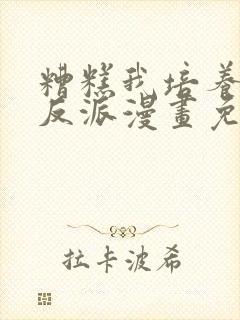 糟糕我培養
反派漫畫免
拉卡波希